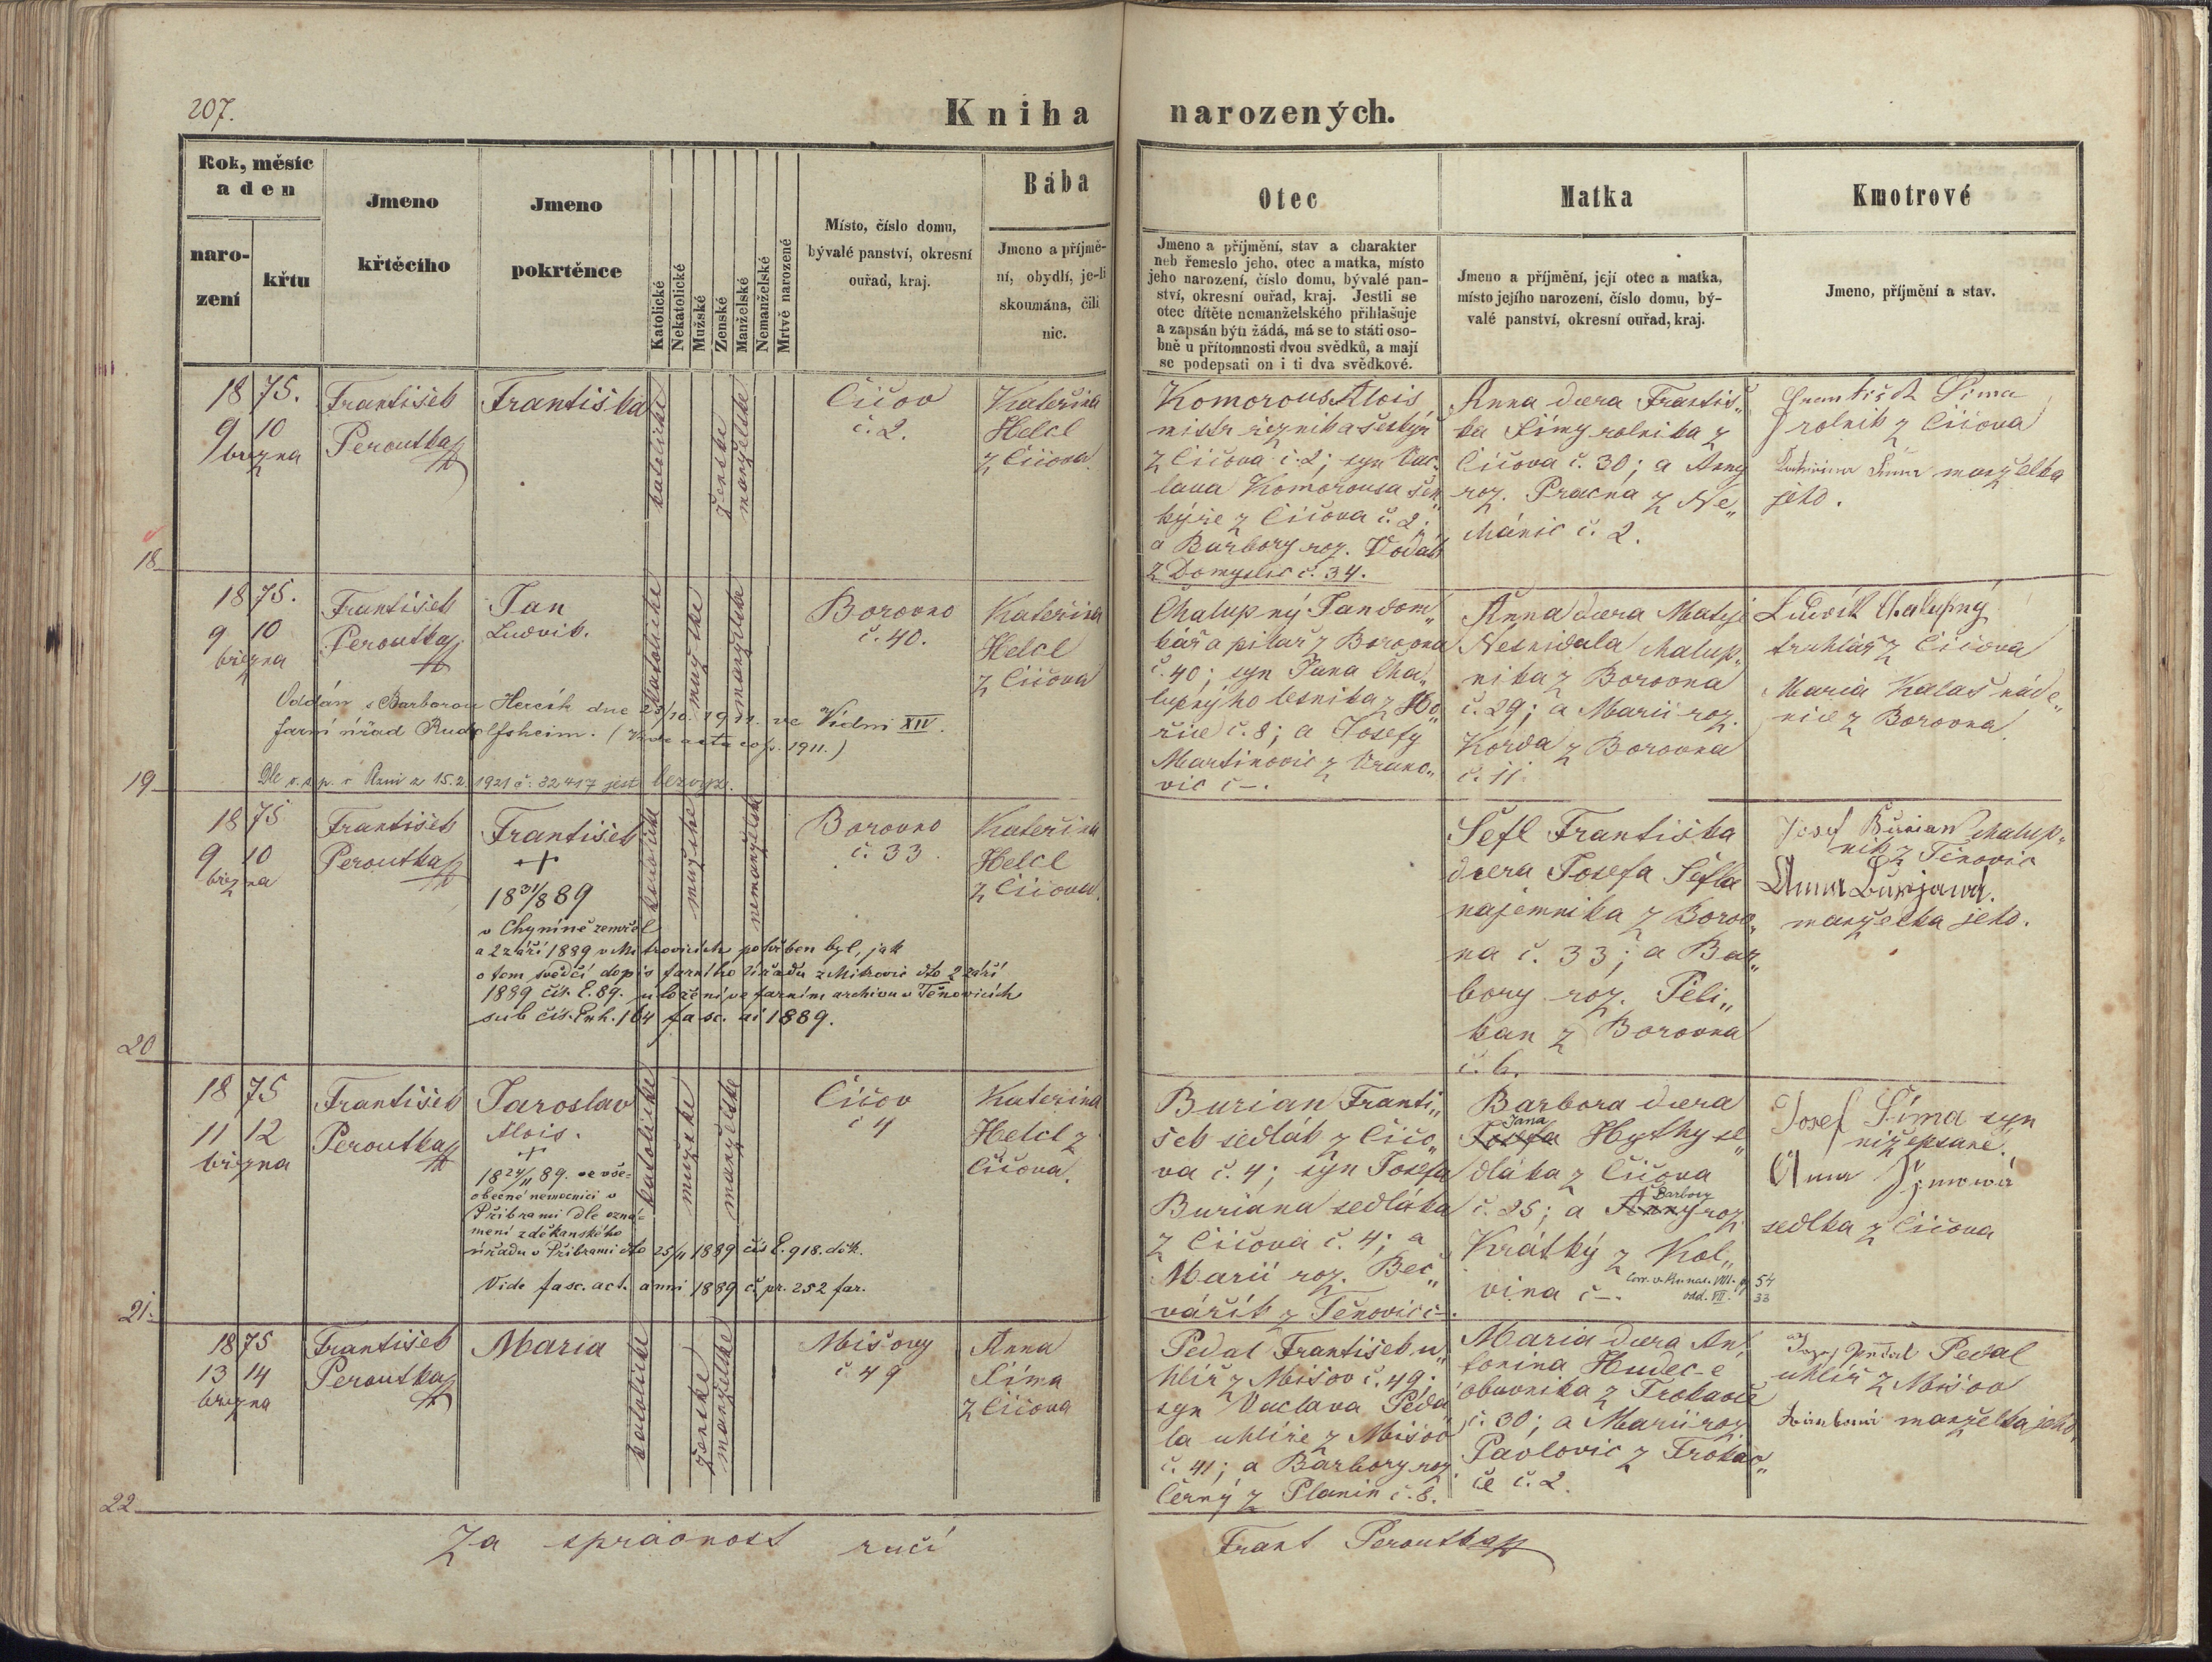 207.
Kniha narozených.
Rok, měsíc
a den
naro-
zení
křtu
Jmeno
křtěcího
Jmeno
pokrtěnce
Katolické
Nekatolické
Mužské
Ženské
Manželské
Nemanželské
Mrtvě narozené
Místo, číslo domu,
bývalé panství, okresní
ouřad, kraj.
Bába
Jmeno a příjmě-
ní, obydlí, je-li
skoumána, čili
nic.
Otec
Jmeno a příjmění, stav a charakter
neb řemeslo jeho, otec a matka, místo
jeho narození, číslo domu, bývalé pan-
ství, okresní ouřad, kraj. Jestli se
otec dítěte nemanželského přihlašuje
a zapsán býti žádá, má se to státi oso-
bně u přítomnosti dvou svědků, a mají
se podepsati on i ti dva svědkové.
Matka
Jmeno a příjmění, její otec a matka,
místo jejího narození, číslo domu, bý-
valé panství, okresní ouřad, kraj.
Kmotrové
Jmeno, příjmění a stav.
18
1875.
9 10
března
František
Peroutka
Františka
katolické
ženské
manželské
Čičov
č. 2.
Kateřina
Helcl
z Čičova.
Komorous Alois
mistr řezník a šenkýř
z Čičova č. 2; syn Vác-
lava Komorousa šen„
kýře z Čičova č. 2;
a Barbory roz. Vodák
z Domyslic č. 34.
Anna dcera Frantiś„
ka Šímy rolníka z
Čičova č. 30; a Anny
roz. Pracna z Ne„
chánic č. 2.
František Šima
rolník z Čičova
Kateřina Šima manželka
jeho.
19
1875.
9 10
března
František
Peroutka
Jan
Ludvík.
katolické
mužské
manželské
Borovno
č. 40.
Kateřina
Helcl
z Čičova
Oddán s Barborou Hercík dne 23/10. 1911. ve Vídni XIV.
farní úřad Rudolfsheim. (Vide acta cop. 1911.)
Dle v. z. p. v Praze z 15.2. 1921 č. 32417 jest bezvyz.
Chalupný Jan dom„
kář a pilař z Borovna
č. 40; syn Jana Cha„
lupnýho lesníka z Ho„
řic č. 8; a Josefy
Martinovic z Vrano„
vic č –.
Anna dcera Matěje
Nesnídala chalup„
níka z Borovna
č. 29; a Marii roz.
Korda z Borovna
č. 11.
Ludvík Chalupný
truhlář z Čičova
Maria Kalaš náde„
nice z Borovna.
20
1875
9 10
března
František
Peroutka
František
+
18 31/8 89
v Chyníně zemřel
a 2 září 1889 v Mitrovicích pohřben byl, jak
o tom svědčí dopis farního úřadu z Mitrovic dto 2 září
1889 čís. E. 89. uložení ve farním archivu v Těnovicích
sub čís. Exh. 164 fasc. ai 1889.
katolické
mužské
nemanželské
Borovno
č. 33.
Kateřina
Helcl
z Čičova.
Šefl Františka
dcera Josefa Šefla
nájemníka z Borov„
na č. 33; a Bar„
bory roz. Peli„
kan z Borovna
č. 6.
Josef Burian chalup„
ník z Těnovic
Anna Burjanová.
manželka jeho.
21.
1875
11 12
března
František
Peroutka
Jaroslav
Alois.
+
18 24/11 89. ve vše-
obecné nemocnici v
Příbrami dle ozná-
mení z děkanského
úřadu v Příbrami dto 25/11 1889 čís E. 918. děk.
Vide fasc. act. anni 1889 č. pr. 252 far.
katolické
mužské
manželské
Čičov
č 4
Kateřina
Helcl z
Čičova.
Burian Franti„
šek sedlák z Čičo„
va č. 4; syn Josefa
Buriana sedláka
z Čičova č. 4; a
Marii roz. Beč„
vářík z Těnovic č –.
Barbora dcera
Jana
Josefa Hythy se„
dláka z Čičova
č. 25; a Anny roz.
Barbory
Krátký z Kol„
vína č –.
Corr. v. Knnar. VIII. p 54
odd. VII. 33
Josef Šíma syn
nížepsané.
Anna Šímová
sedlka z Čičova
22
1875
13 14
března
František
Peroutka
Maria
katolické
ženské
manželské
Míšovy
č 49
Anna
Šíma
z Čičova
Pedal František u„
hlíř z Míšov č. 49;
syn Václava Peda„
la uhlíře z Míšov
č. 41; a Barbory roz.
Černý z Planin č. 8.
Maria dcera An„
tonína Hudec-e
obuvníka z Trokavce
č. 30; a Marii roz.
Pavlovic z Trokav„
ce č. 2.
Pedal
uhlíř z Míšov
manželka jeho.
Za správnost ručí
Frant Peroutka